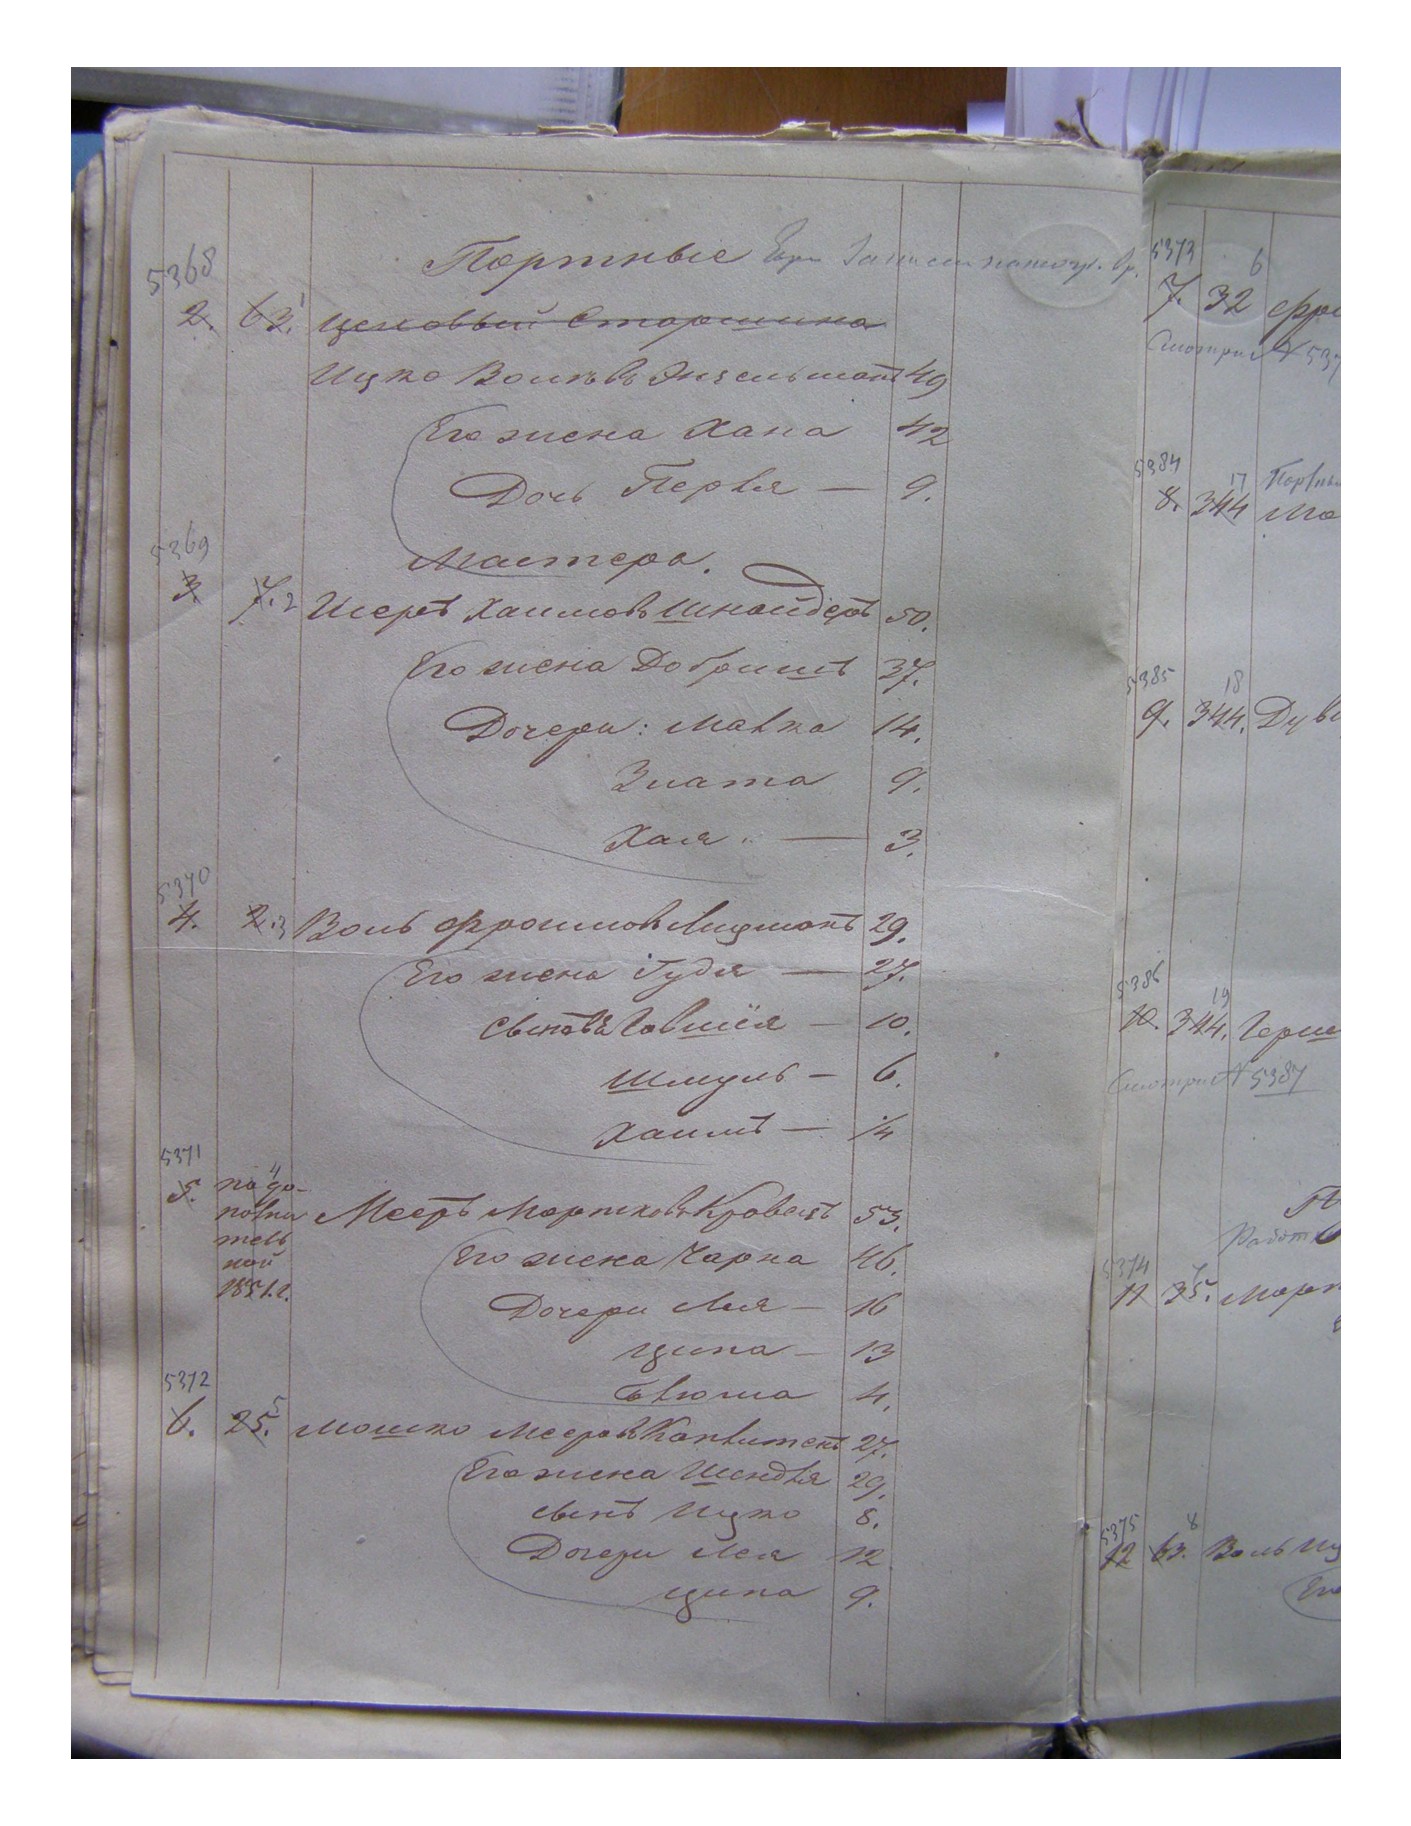 5368
Портные
2. 63. 1 Цеховый Старшина
Ицко Вольковъ 49
Его жена Хана 42
Дочь Перля — 9.
Мастера.
5369
3. 7. 2 Шеръ Хаимовъ Шнайдеръ 50.
Его жена Добришъ 37.
Дочери: Малка 14.
Злата 9.
Хая — 3.
5370
4. 2. 3 Воль Фроимовъ Лицманъ 29.
Его жена Гудя — 27.
Сыновья — 10.
Шмуль — 6.
Хаимъ — 1/4
5371
5. 4 по до-
полни
тель
ной
1851 г.
Мееръ Мортковъ 53.
Его жена Чарна 46.
Дочери Лея — 16
Ципа — 13
4.
5372
6. 25. 5 Мошко Мееровъ 27.
Его жена Шендля 29.
Сынъ Ицко 8.
Дочери Лея 12
Ципа 9.
5373
6
7. 32 Фро
Смотри № 537
5384
17
8. 344 Мо
5385
18
9. 344. Дув
5386
19
10. 344. Герш
Смотри № 5387
Работ
5374
7
11 35. Морт
5375
8
12 63. Воль Иц
Его